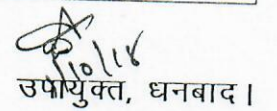 /10/18
उपायुक्त, धनबाद।